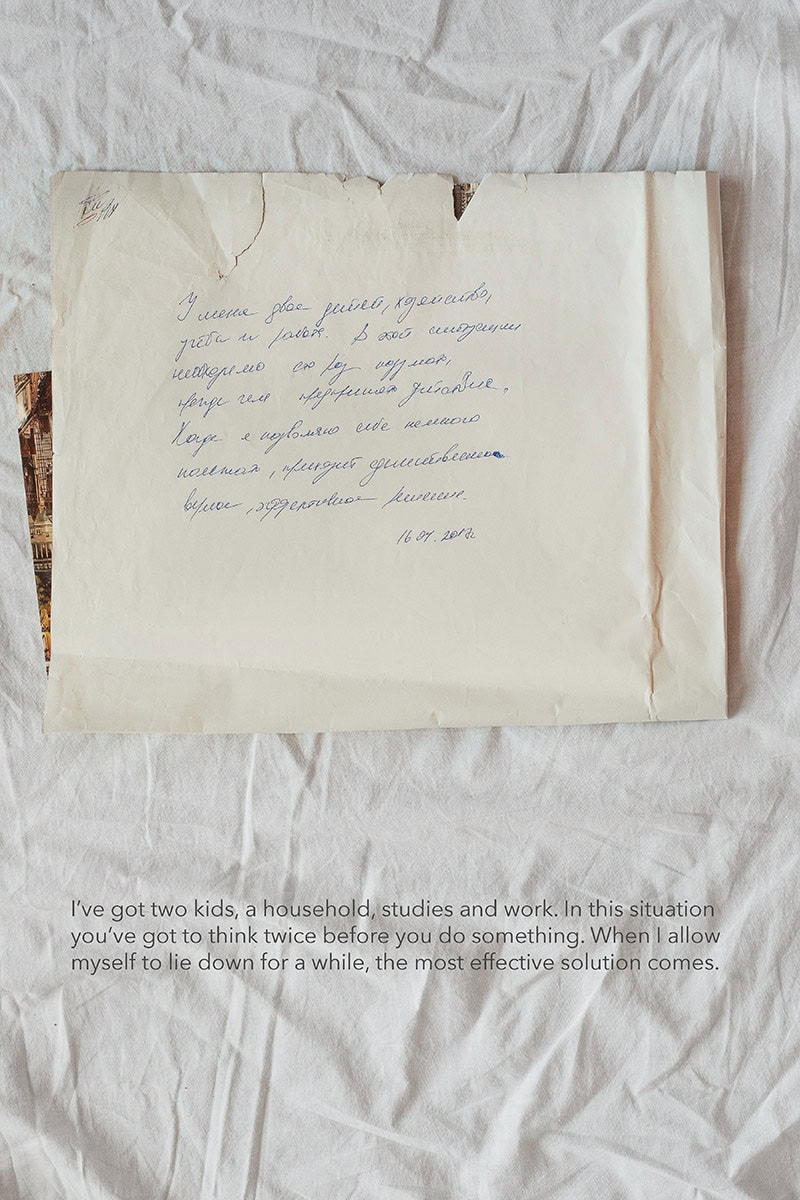 У меня двое детей, хозяйство,
учёба и работа. В этой ситуации
необходимо сто раз подумать,
прежде чем предпринять действие.
Когда я позволяю себе немного
полежать, приходит единственно
верное, эффективное решение.
16.04.2017г
I've got two kids, a household, studies and work. In this situation
you've got to think twice before you do something. When I allow
myself to lie down for a while, the most effective solution comes.